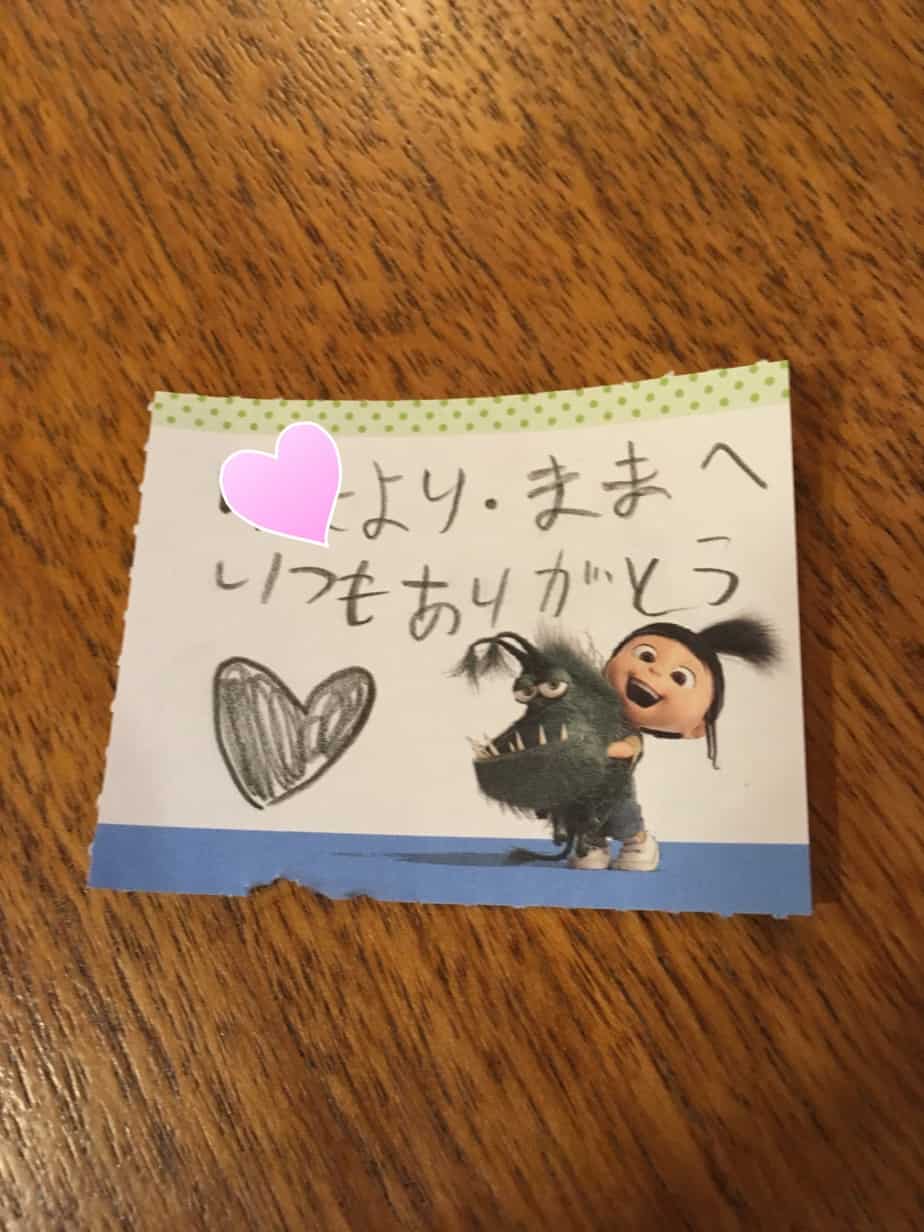 より・ままへ
いつもありがとう